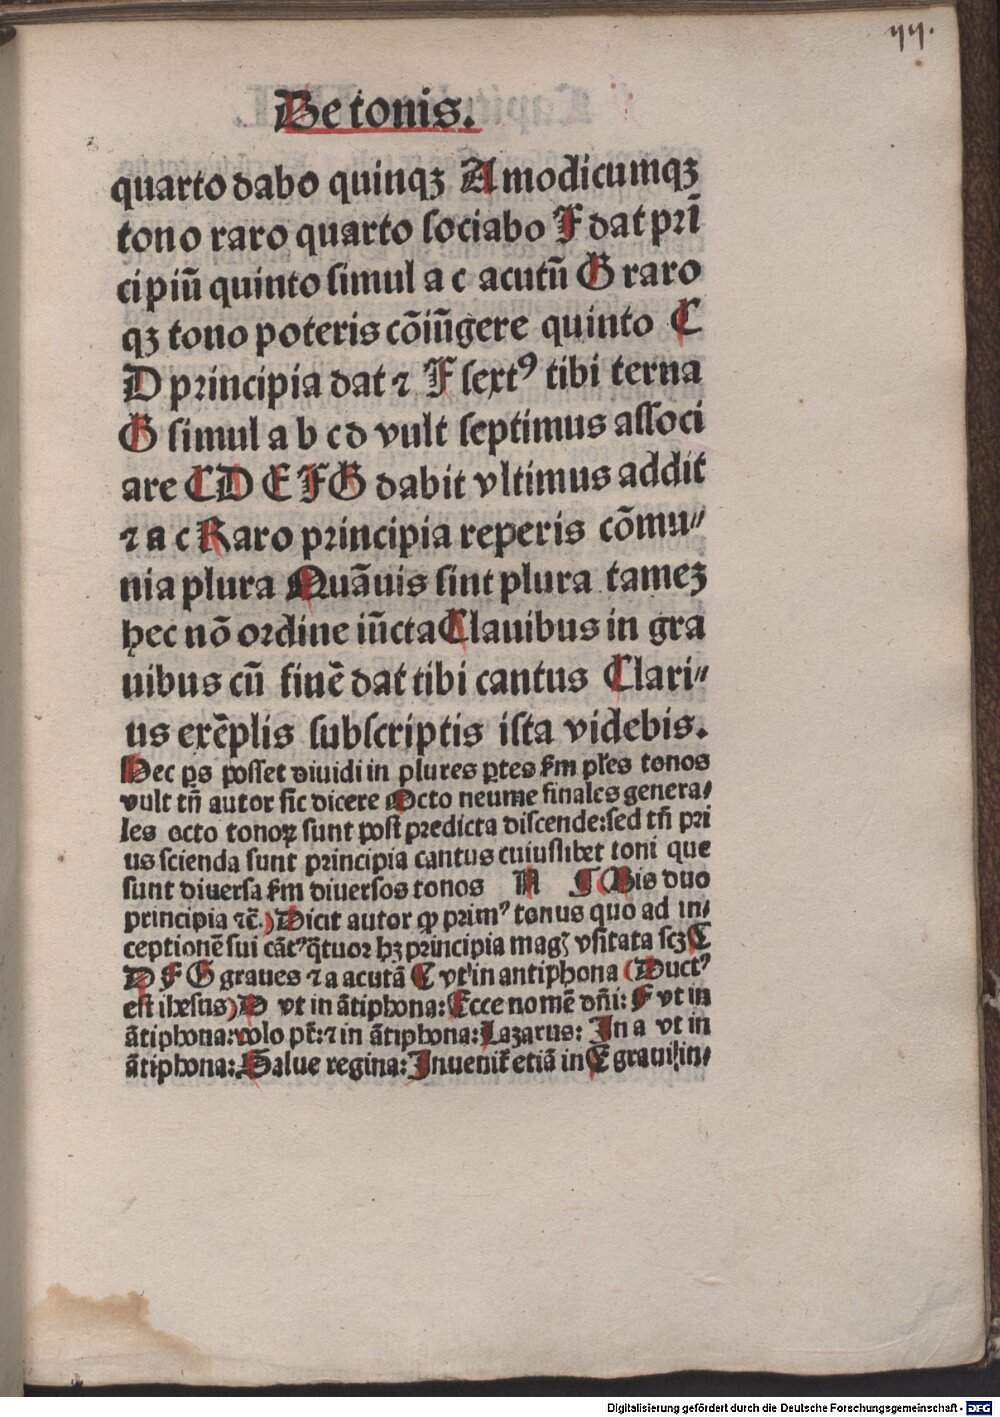 77.
De tonis.
quarto dabo quinqꝫ A modicumqꝫ
tono raro quarto ſociabo F dat pri᷒̄
cipiū quinto ſimul a c acutū G raro
qꝫ tono poteris cōiūgere quinto C
D principia dat ⁊ F ſextꝰ tibi terna
G ſimul a b c d vult ſeptimus aſſoci
are C D E F G dabit vltimus addit
⁊ a c Raro principia reperis cōmu⸗
nia plura Quāuis ſint plura tameꝫ
hec nō ordine iūcta Clauibus in gra
uibus cū finē dat tibi cantus Clari⸗
us exēplis ſubſcriptis iſta videbis.
Hec ꝑs poſſet diuidi in plures ꝑtes ẜm pl'es tonos
vult tn̄ autor ſic dicere Octo neume finales genera⸗
les octo tonoꝝ ſunt poſt predicta diſcende: ſed tn̄ pri
us ſcienda ſunt principia cantus cuiuſlibet toni que
ſunt diuerſa ẜm diuerſos tonos A ¶ (Bis duo
principia ⁊c̄.) Dicit autor ꝙ primꝰ tonus quo ad in⸗
ceptionē ſui cātꝰ q̄tuor hꝫ principia mag᷒ vſitata ſcꝫ C
D F G graues ⁊ a acutā C vt in antiphona (Duct᷒
eſt iheſus) D vt in ātiphona: Ecce nomē dn̄i: F vt in
ātiphona: volo pr̄: ⁊ in ātiphona: Lazarus: In a vt in
ātiphona: Salue regina: Inuenit̄ etiā in E graui: in⸗
Digitalisierung gefördert durch die Deutsche Forschungsgemeinschaft - DFG